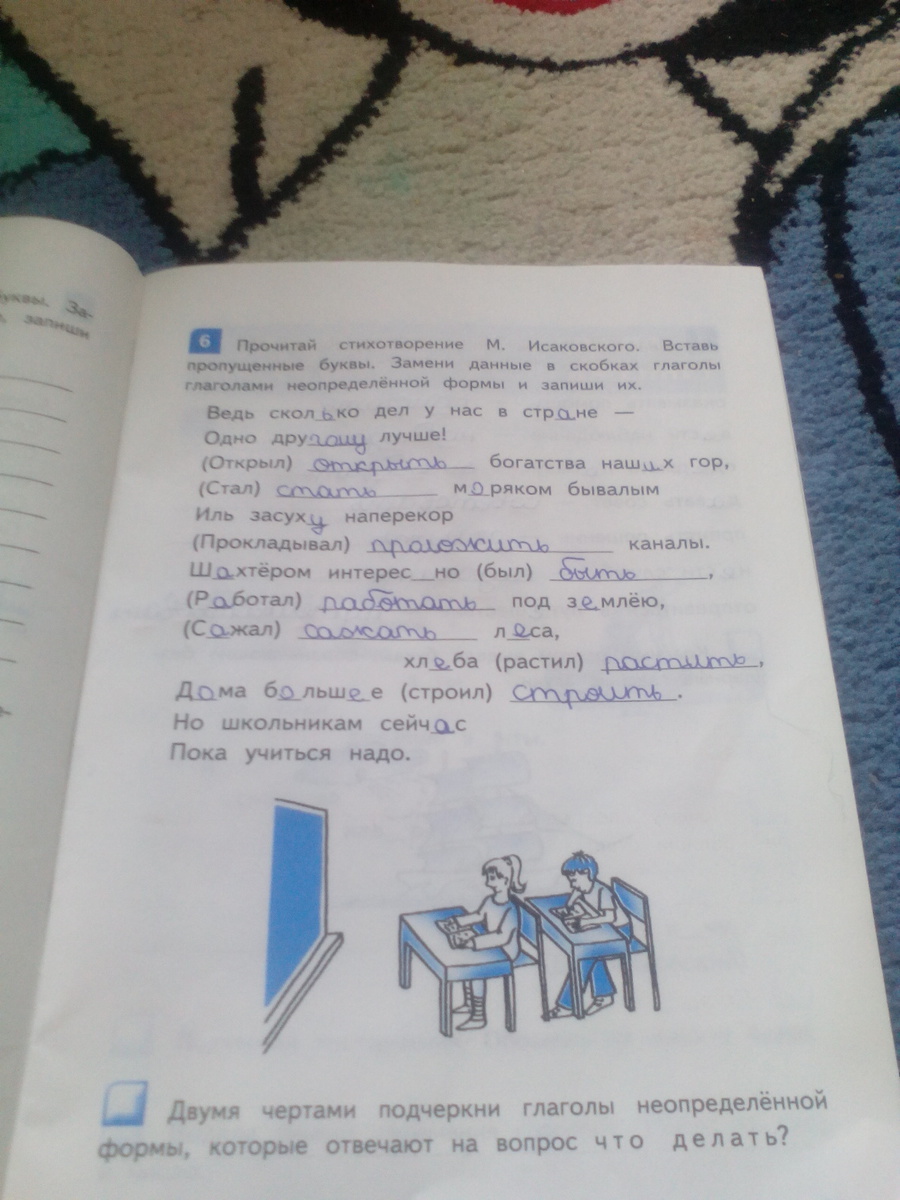 буквы. За-
запиши
6 Прочитай стихотворение М. Исаковского. Вставь
пропущенные буквы. Замени данные в скобках глаголы
глаголами неопределённой формы и запиши их.
Ведь сколько дел у нас в стране —
Одно другому лучше!
(Открыл) открыть богатства наших гор,
(Стал) стать моряком бывалым
Иль засуху наперекор
(Прокладывал) проложить каналы.
Шахтёром интерес_но (был) быть,
(Работал) работать под землёю,
(Сажал) сажать леса,
хлеба (растил) растить,
Дома больше е (строил) строить.
Но школьникам сейчас
Пока учиться надо.
Двумя чертами подчеркни глаголы неопределённой
формы, которые отвечают на вопрос что делать?